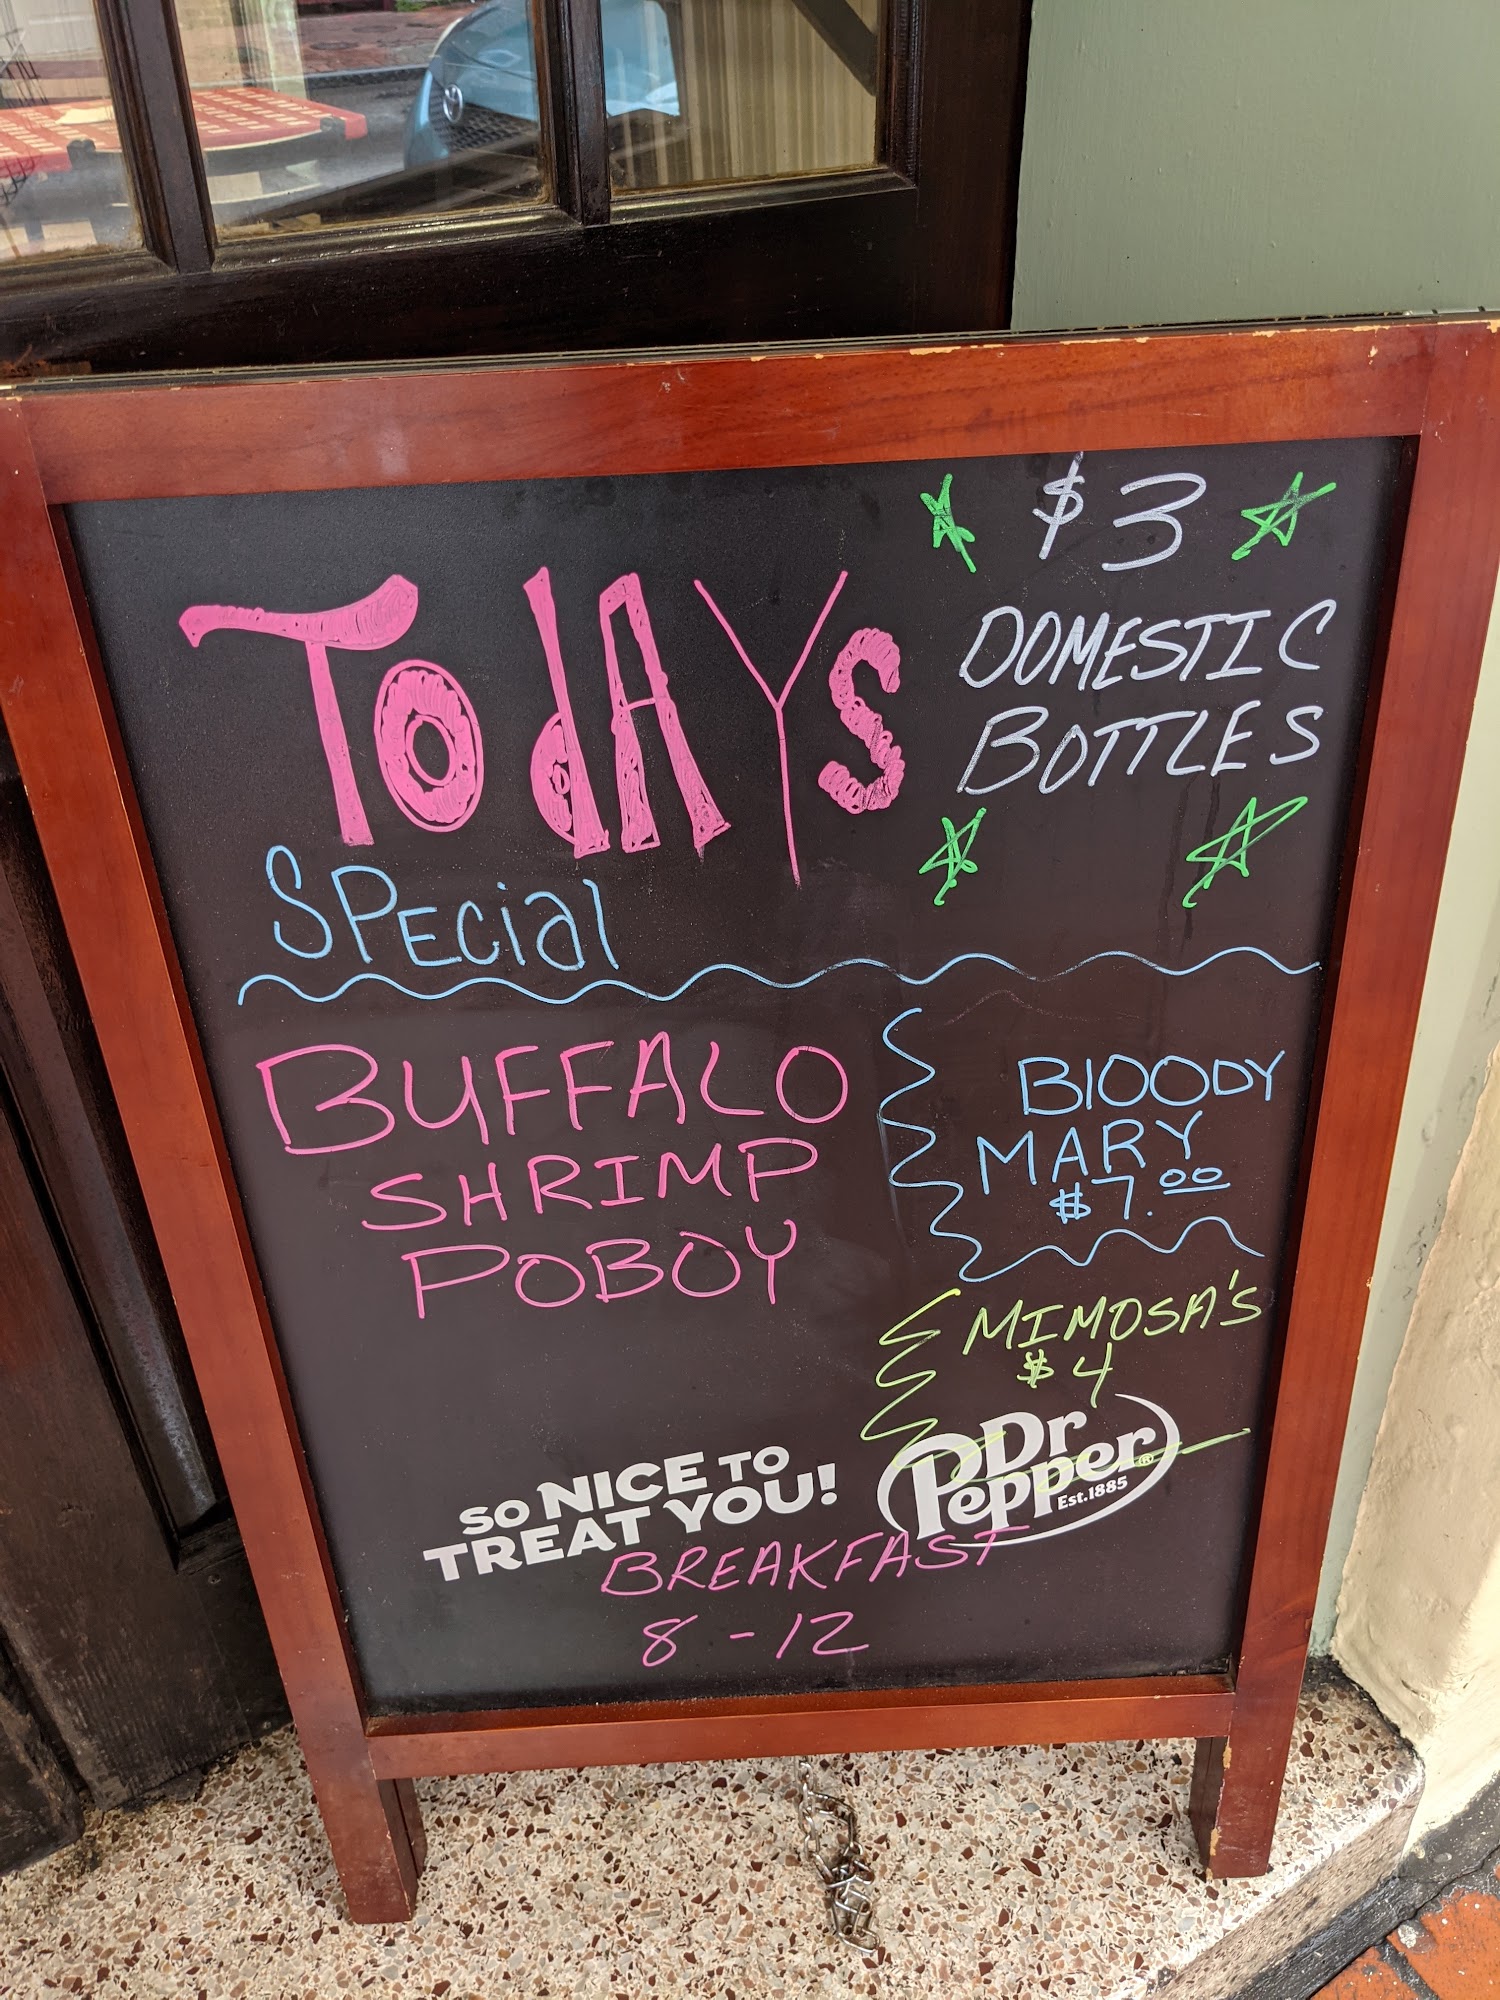 TOdAYS
SPECial
$3
DOMESTIC
BOTTLES
BUFFALO
SHRIMP
POBOY
BlOODY
MARY
$7.00
MIMOSA'S
$4
SO NICE TO
TREAT YOU!
Dr
Pepper®
Est.1885
BREAKFAST
8-12